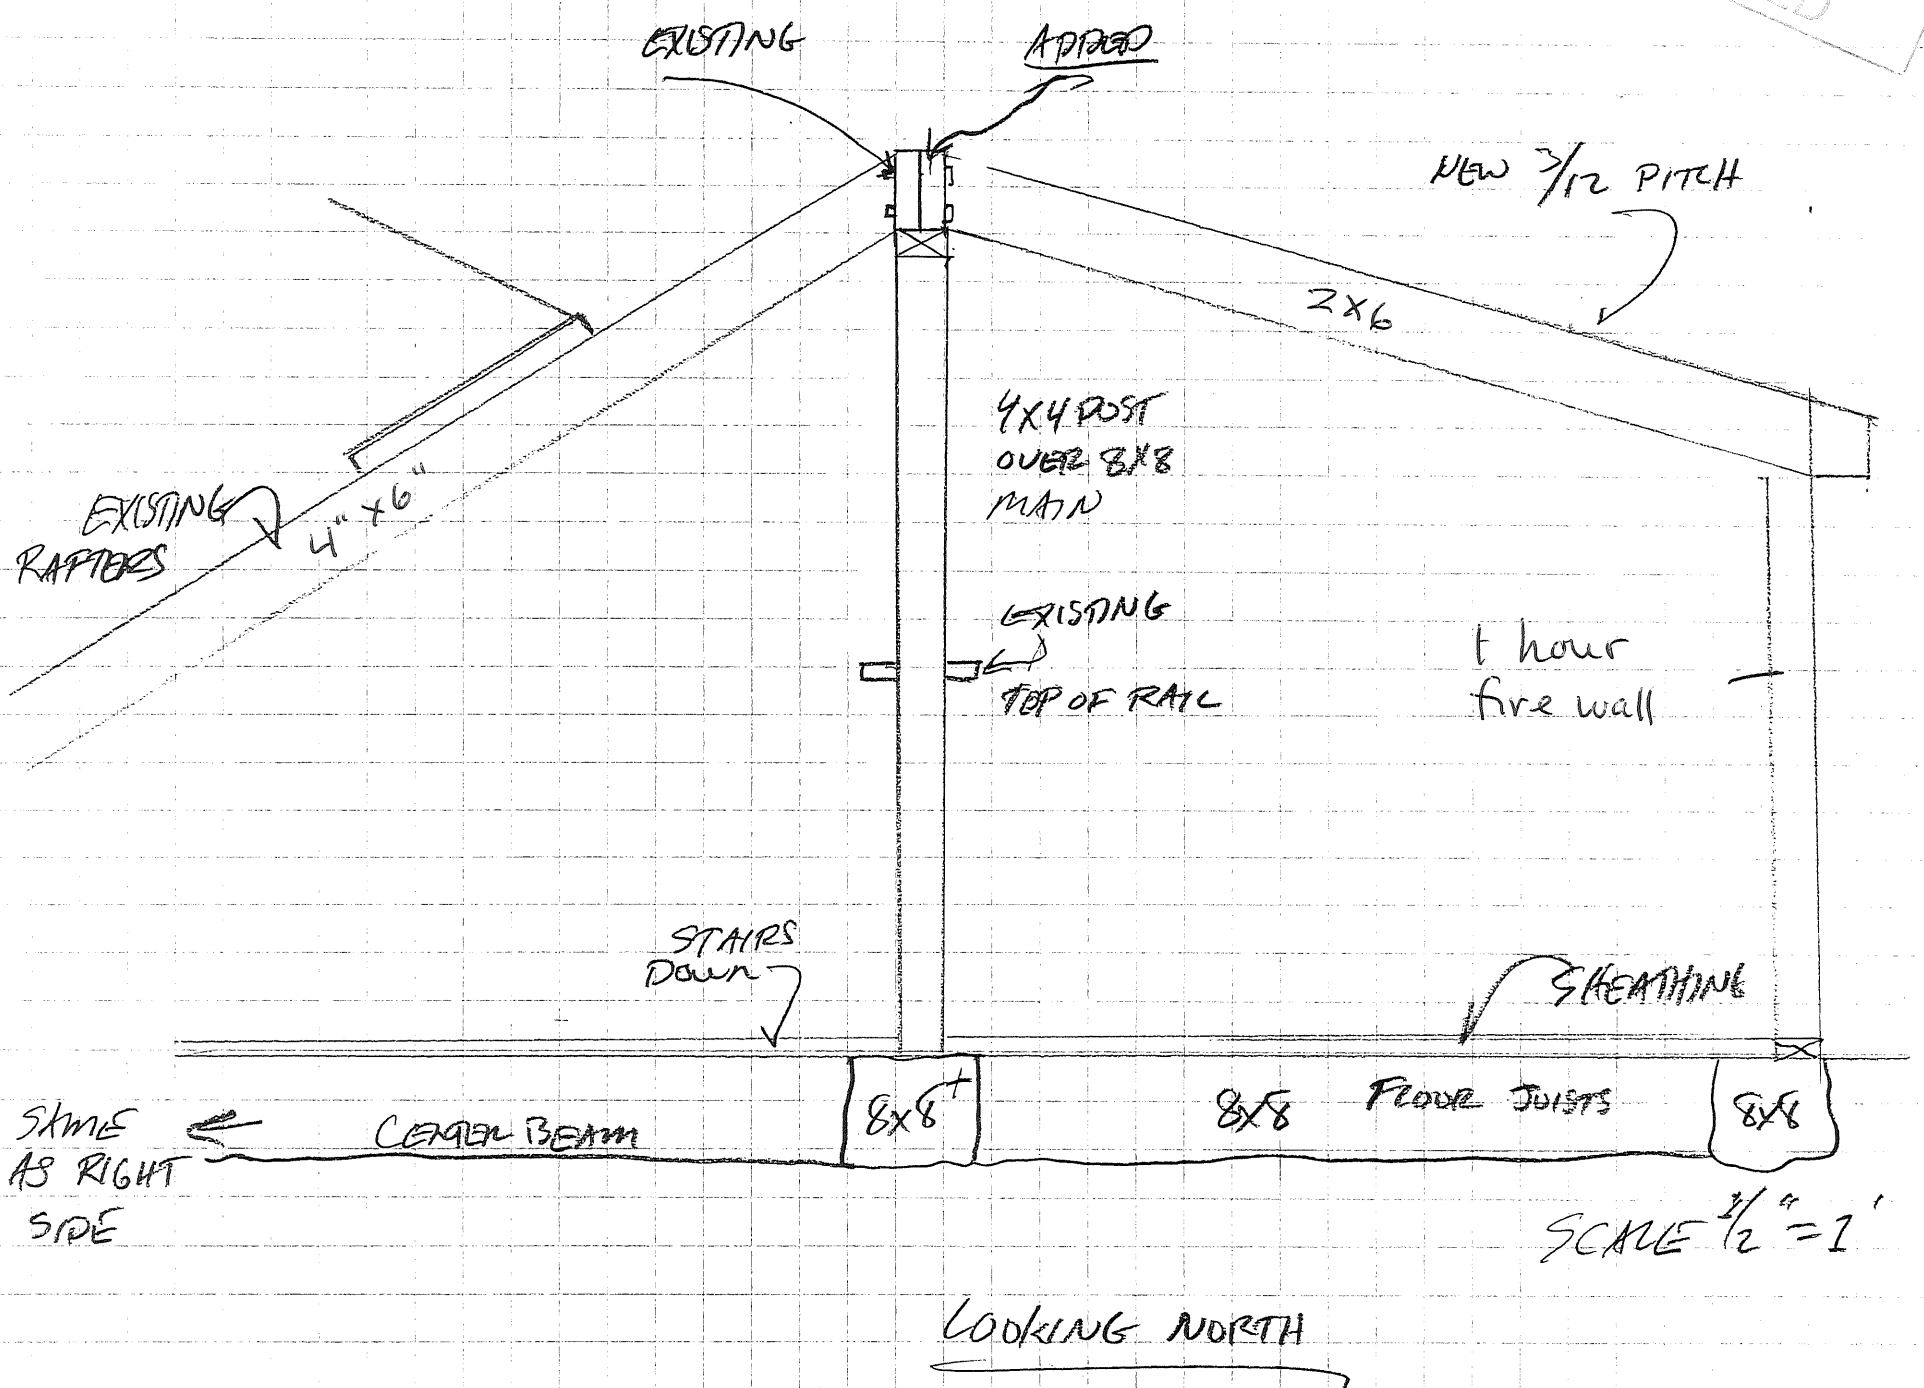 EXISTING
ADDED
NEW 3/12 PITCH
2x6
4x4 POST
OVER 8x8
MAIN
EXISTING
RAFTERS
4" x 6"
EXISTING
TOP OF RAIL
1 hour
fire wall
STAIRS
DOWN
SHEATHING
8x8
8x8
FLOOR JOISTS
8x8
CENTER BEAM
SAME
AS RIGHT
SIDE
SCALE 1/2" = 1'
LOOKING NORTH